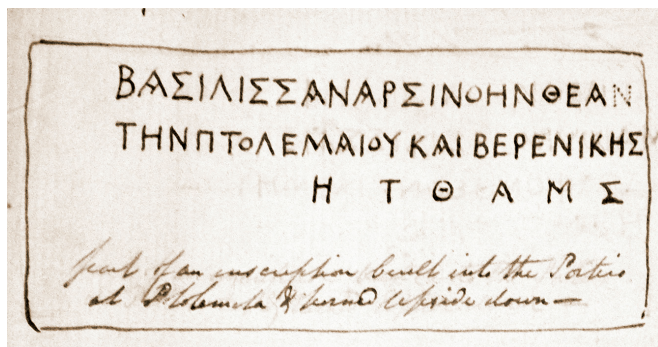 ΒΑΣΙΛΙΣΣΑΝΑΡΣΙΝΟΗΝΘΕΑΝ
ΤΗΝΠΤΟΛΕΜΑΙΟΥΚΑΙΒΕΡΕΝΙΚΗΣ
Η Τ Θ Α Μ Σ
part of an inscription built into the Portico
at Ptolemeta & turned upside down —